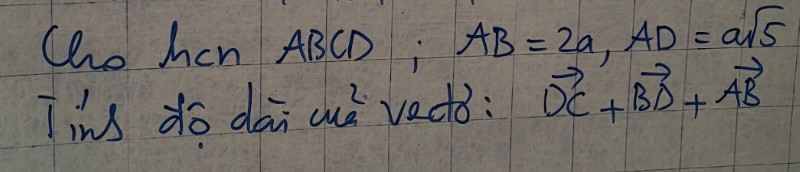 Cho hcn ABCD ; AB = 2a, AD = a√5
Tính độ dài của vectơ: \overrightarrow{DC} + \overrightarrow{BD} + \overrightarrow{AB}